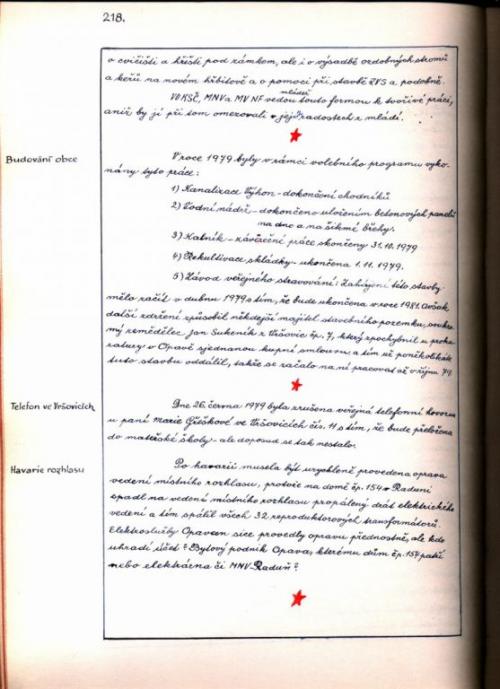 218.
o cvičišti a hřišti pod zámkem, ale i o výsadbě ozdobných stromů
a keřů na novém hřbitově a o pomoci při stavbě ZVS a podobně.
VO KSČ, MNV a MV NF vedou mládež touto formou k tvořivé práci,
aniž by jí při tom omezovali v jejích radostech z mládí.
Budování obce
V roce 1979 byly v rámci volebního programu vyko-
nány tyto práce:
1) Kanalizace Výhon - dokončení chodníků
2) Vodní nádrž - dokončeno uložením betonových panelů
na dno a na šikmé břehy.
3) Katník - závěrečné práce skončeny 31.10.1979
4) Rekultivace skládky - ukončena 1.11.1979.
5) Závod veřejného stravování: Zahájení této stavby
mělo začít v dubnu 1979 s tím, že bude ukončena v roce 1981. Avšak
další zdržení způsobil někdejší majitel stavebního pozemku, soukro
mý zemědělec Jan Sukeník z Vršovic čp. 7, který zpochybnil u proku
ratury v Opavě sjednanou kupní smlouvu a tím už poněkolikáté
tuto stavbu oddálil, takže se začalo na ní pracovat až v říjnu 79
Telefon ve Vršovicích
Dne 26. června 1979 byla zrušena veřejná telefonní hovorna
u paní Marie Gřeškové ve Vršovicích čís. 11 s tím, že bude přeložena
do mateřské školy - ale doposud se tak nestalo.
Havarie rozhlasu
Po havarii musela být urychleně provedena oprava
vedení místního rozhlasu, protože na domě čp. 154 v Raduni
spadl na vedení místního rozhlasu propálený drát elektrického
vedení a tím spálil všech 32 reproduktorových transformátorů.
Elektroslužby Opava sice provedly opravu přednostně, ale kdo
uhradí účet? Bytový podnik Opava, kterému dům čp. 154 patří
nebo elektrárna či MNV-Raduň?